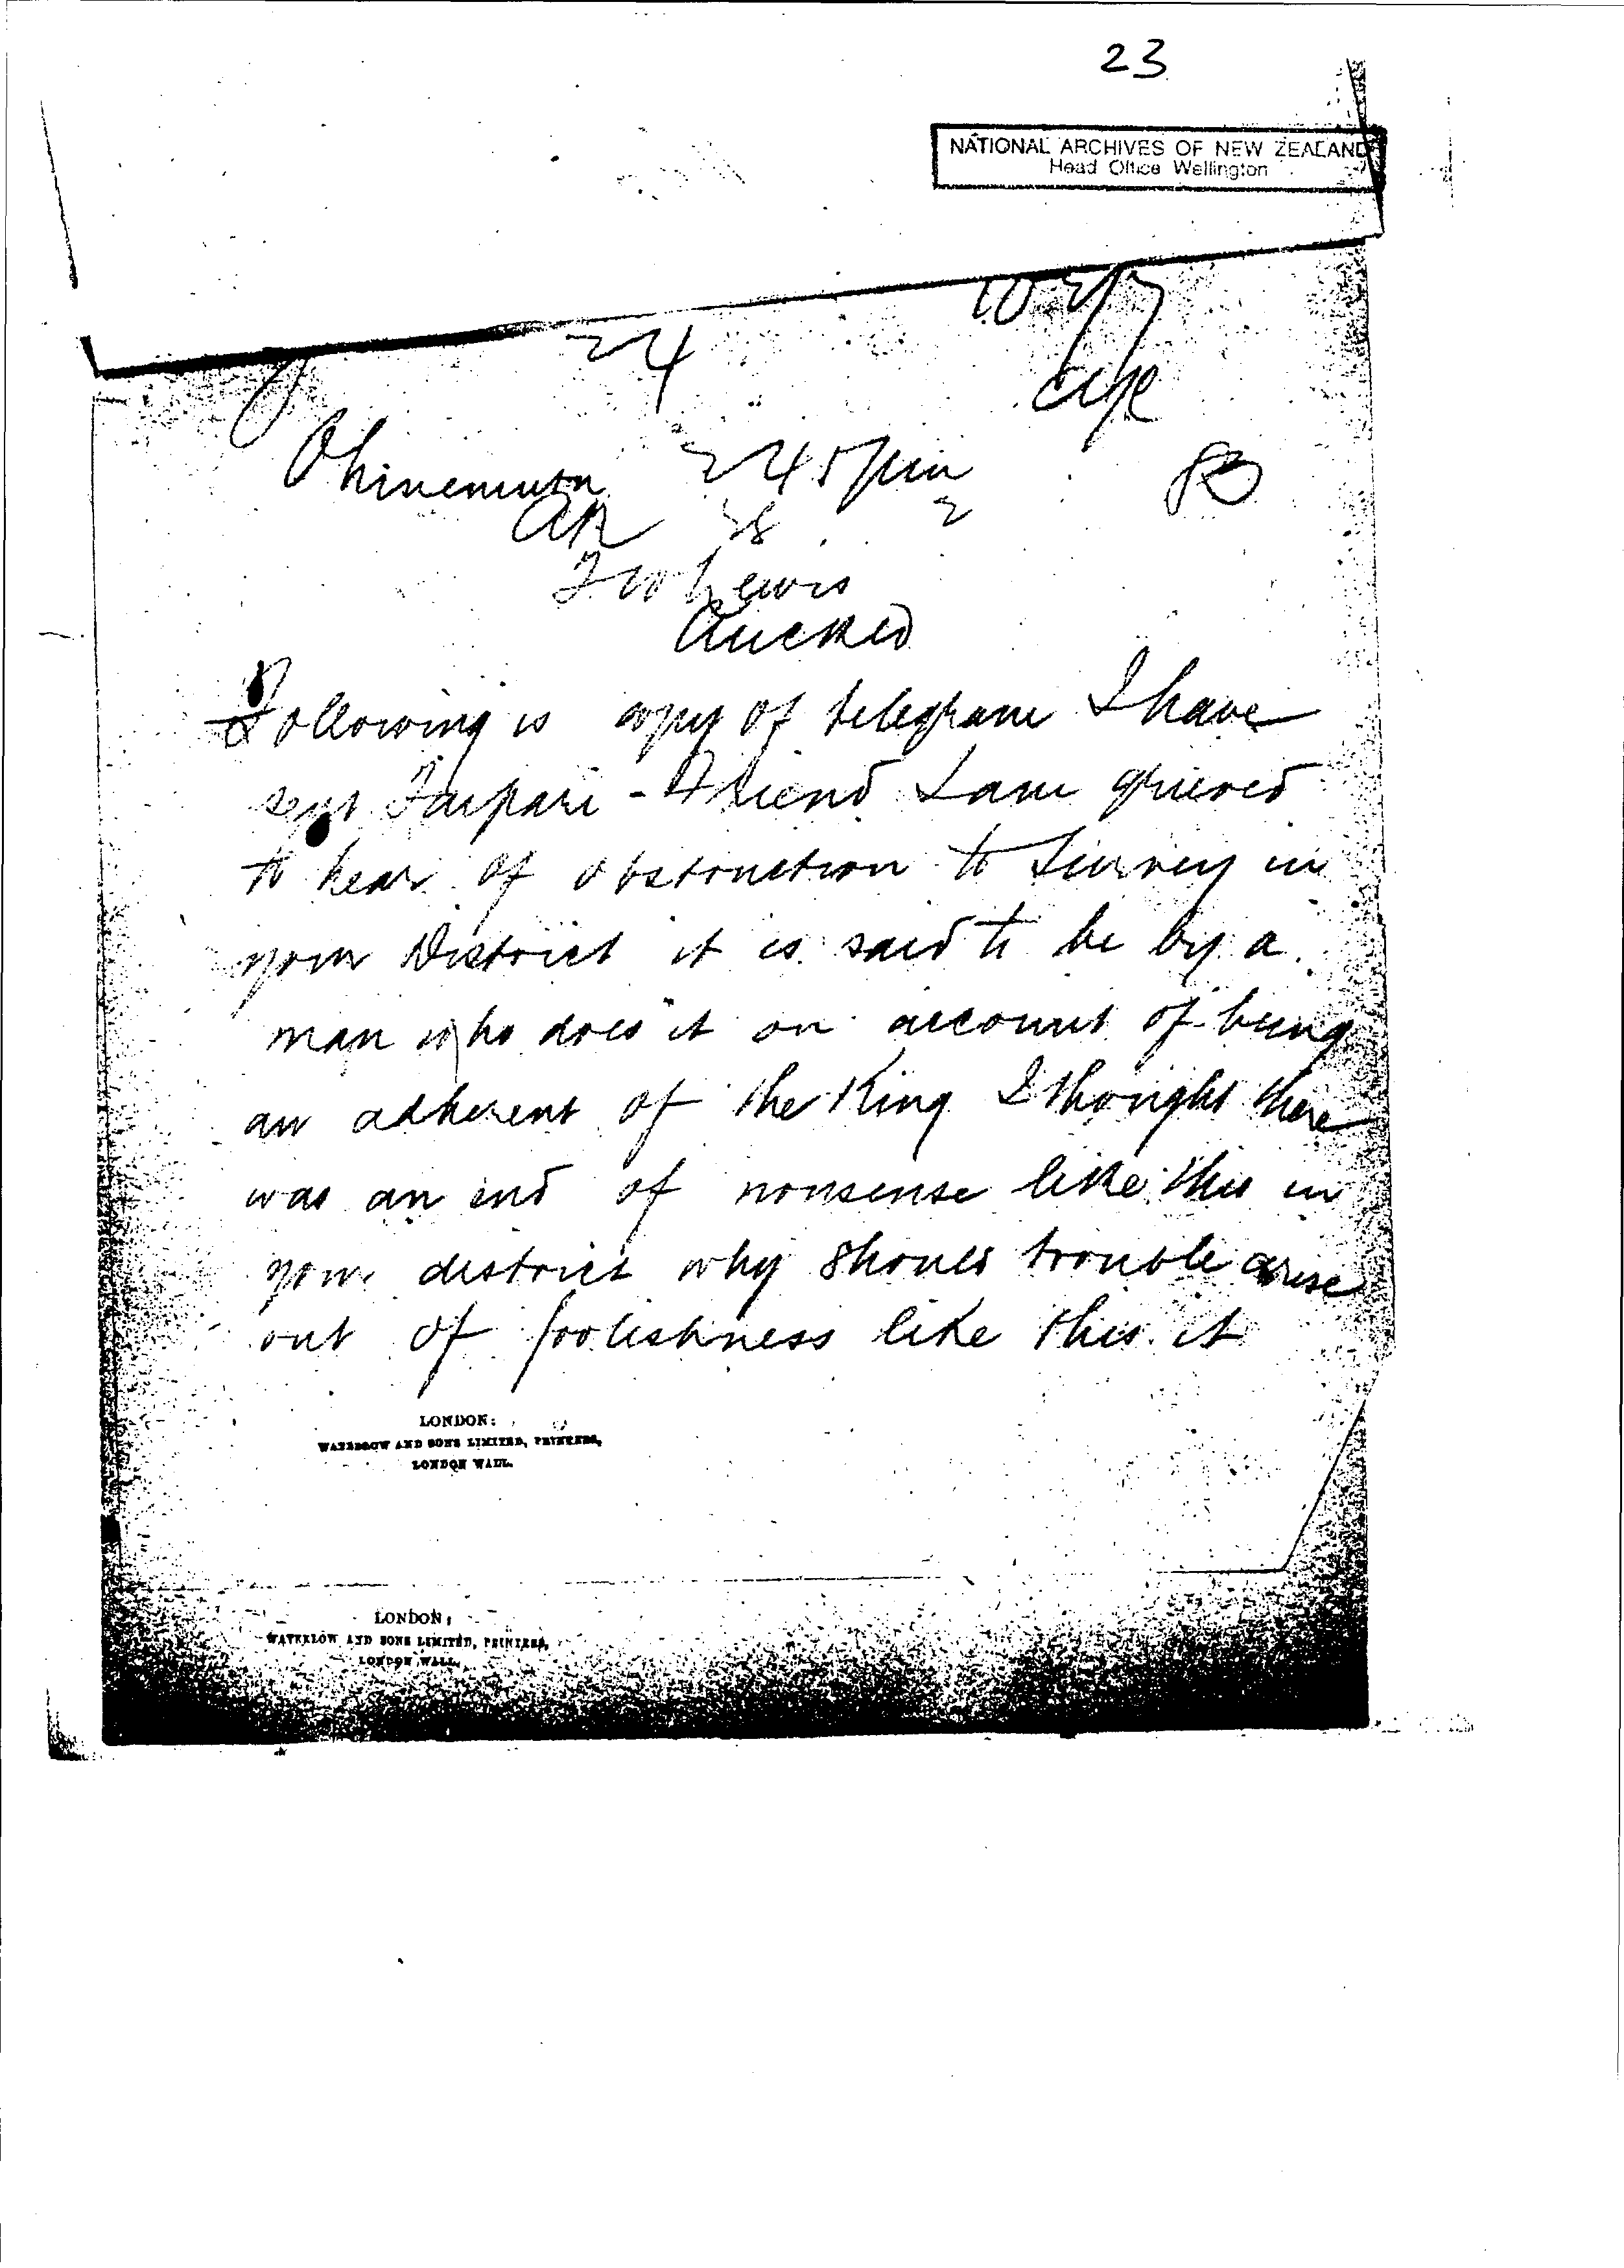 23
NATIONAL ARCHIVES OF NEW ZEALAND
Head Office Wellington
24
Ohinemutu 245 pm
AR 28 2
T W Lewis
Auckld
Following is copy of telegram I have
sent Taipari - Friend I am grieved
to hear of obstruction to Survey in
your District it is said to be by a
man who does it on account of being
an adherent of the King I thought there
was an end of nonsense like this in
your district why should trouble arise
out of foolishness like this it
LONDON:
WATERLOW AND SONS LIMITED, PRINTERS,
LONDON WALL.
LONDON:
WATERLOW AND SONS LIMITED, PRINTERS,
LONDON WALL.